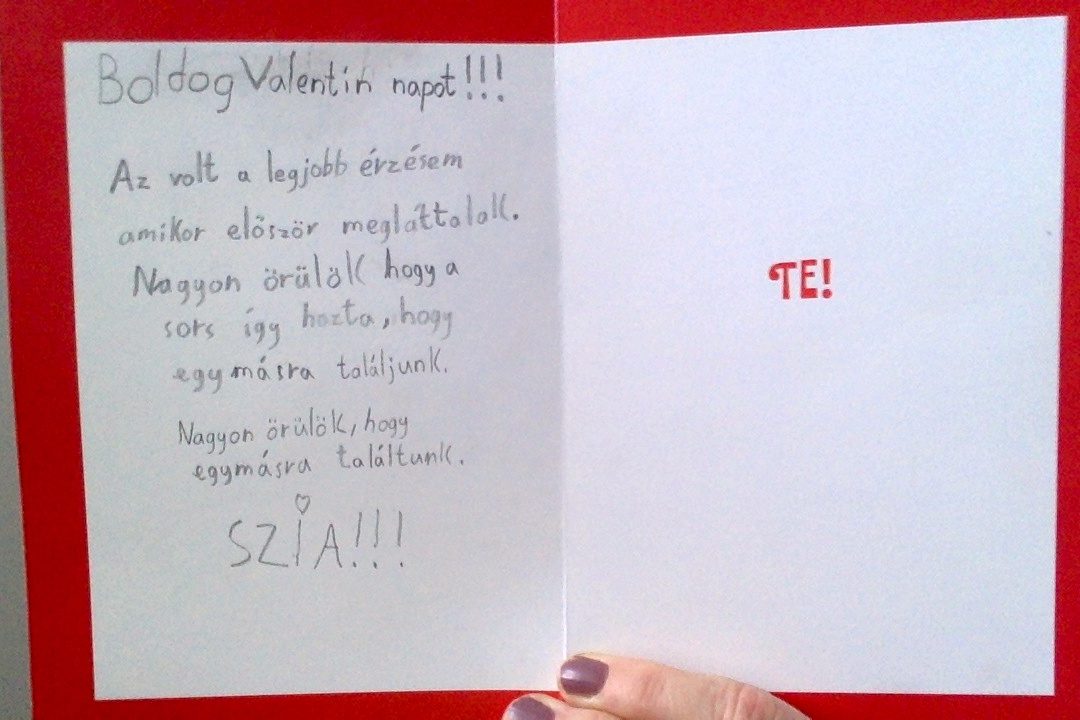 Boldog Valentin napot!!!
Az volt a legjobb érzésem
amikor előszőr megláttalak.
Nagyon örülök hogy a
sors így hozta, hogy
egymásra találjunk.
Nagyon örülök, hogy
egymásra találtunk.
SZIA!!!
TE!